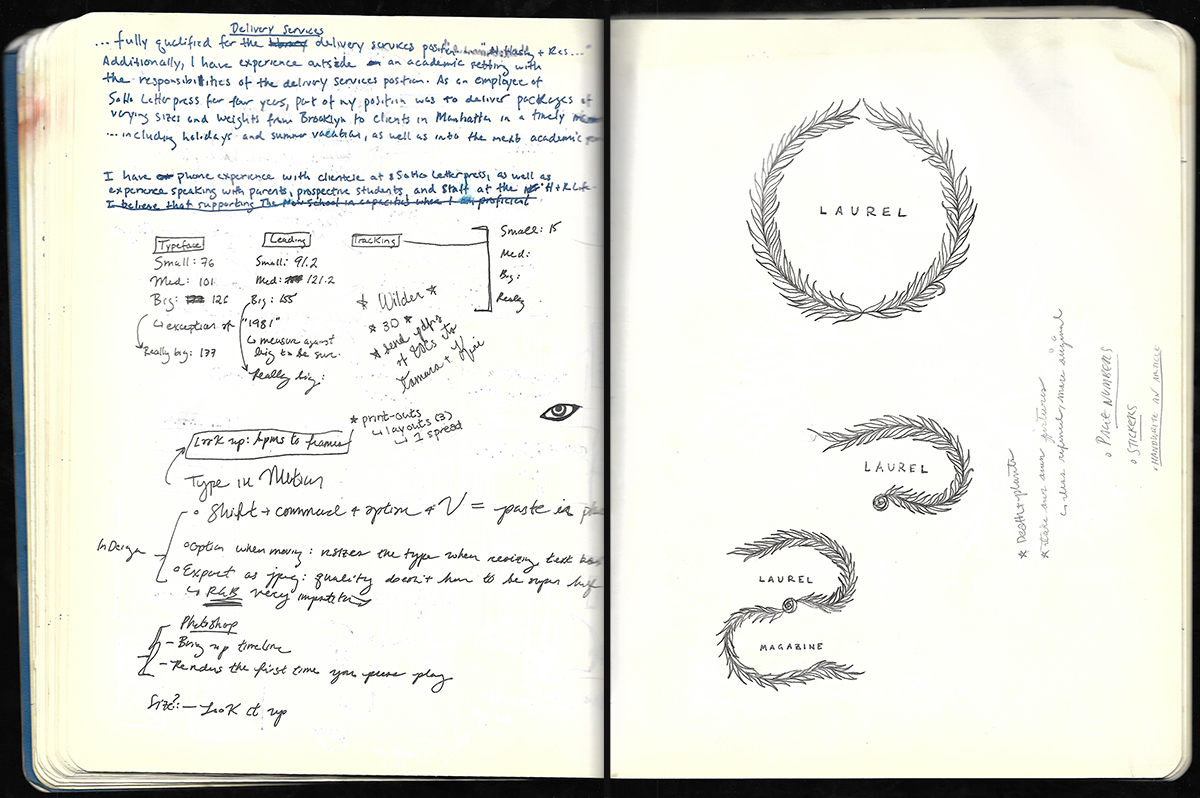 Delivery Services
... fully qualified for the delivery services
Additionally, I have experience outside an academic setting with
the responsibilities of the delivery services position. As an employee of
SoHo Letterpress for four years, part of my position was to deliver packages of
varying sizes and weights from Brooklyn to clients in Manhattan in a timely
... including holidays and summer vacation, as well as into the next academic
I have phone experience with clientele at SoHo Letterpress, as well as
experience speaking with parents, prospective students, and staff at the
I believe that supporting The New School in capacities when I proficient
Typeface
Small: 76
Med: 101
Big: 126
↳ exception of "1981"
Really big: 177
Leading
Small: 91.2
Med: 121.2
Big: 155
↳ measure against
big to be sure.
Really big:
Tracking
Small: 15
Med:
Big:
Really
* Wilder *
* 30 *
* send pdfs
of to
Tamara +
* print-outs
↳ layouts (3)
↳ 1 spread
Look up: bpms to frames
Type in Motion
InDesign
• Shift + command + option + V = paste in
• Option when moving: resizes the type when resizing text
• Export as jpeg: quality doesn't have to be super
↳ RGB very important
Photoshop
- Bring up timeline
- Renders the first time you press play
Size?: - Look it up
LAUREL
LAUREL
LAUREL
MAGAZINE
* Death + plants
* take our own pictures
↳ ideas refined, more original
• PAGE NUMBERS
• STICKERS
• HANDWRITE AN ARTICLE